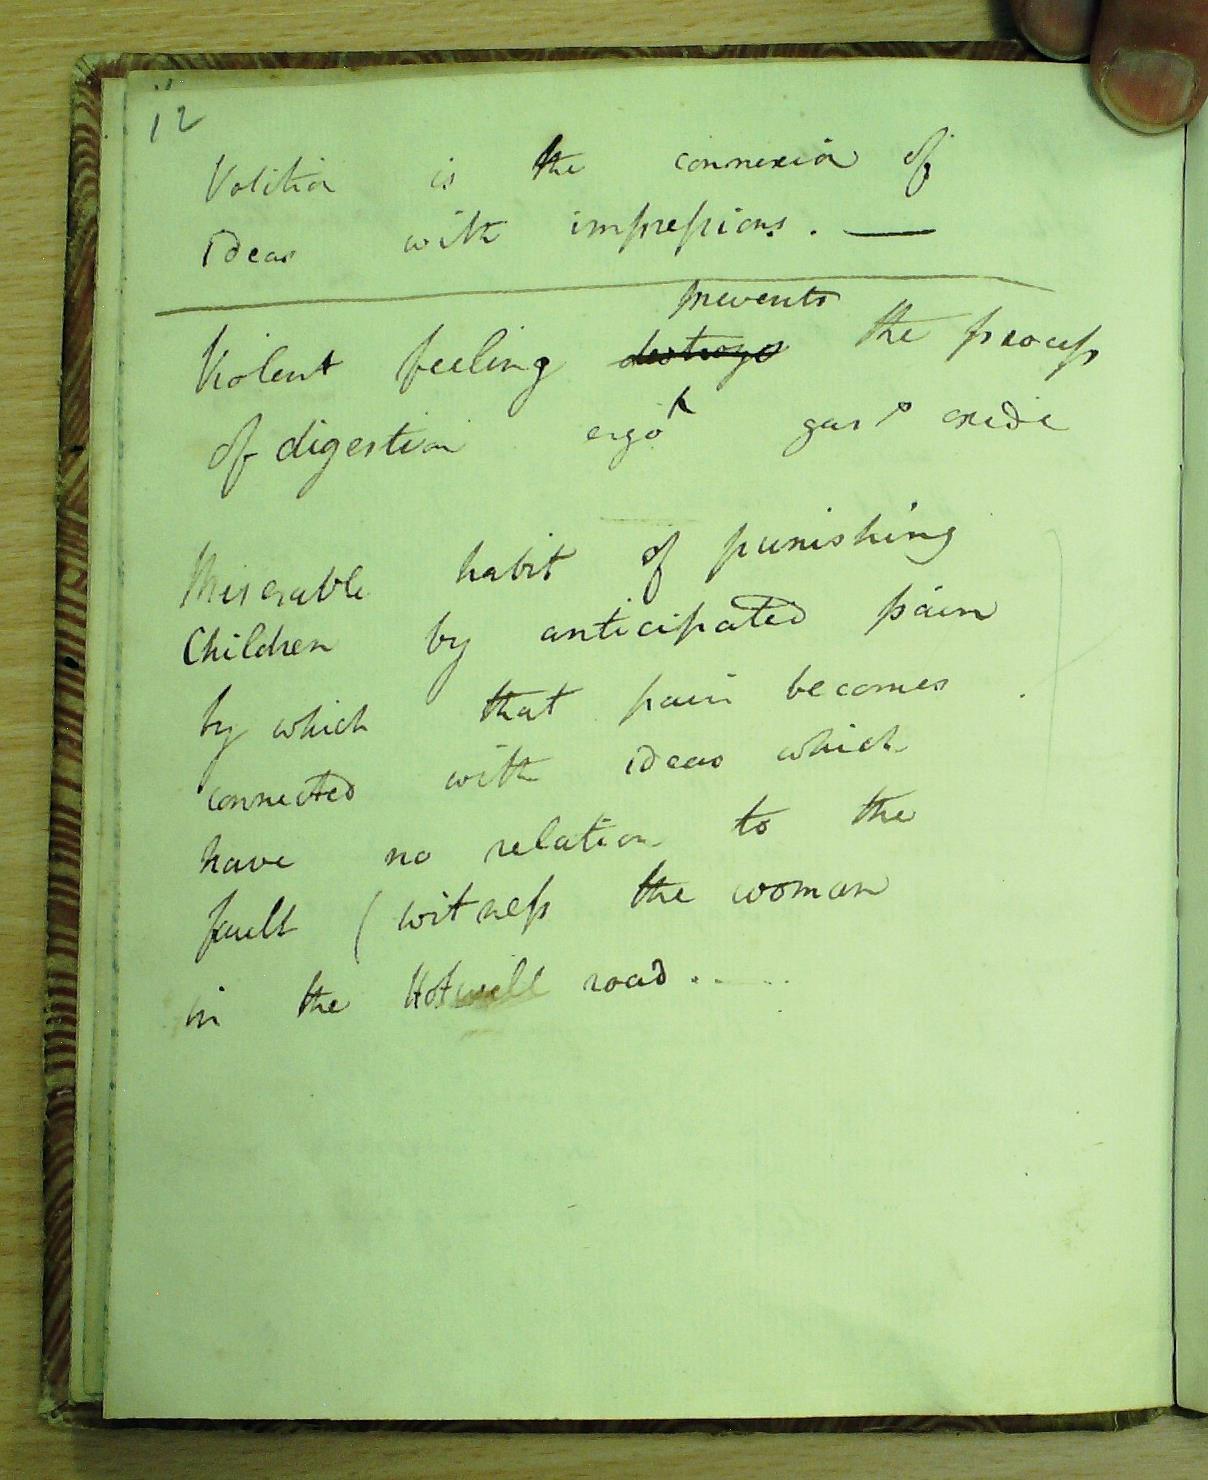 12
Volition is the connexion of
ideas with impressions. —
prevents
Violent feeling destroys the process
of digestion ergo gas oxide
Miserable habit of punishing
Children by anticipated pain
by which that pain becomes
connected with ideas which
have no relation to the
fault (witness the woman
in the Hotwell road....